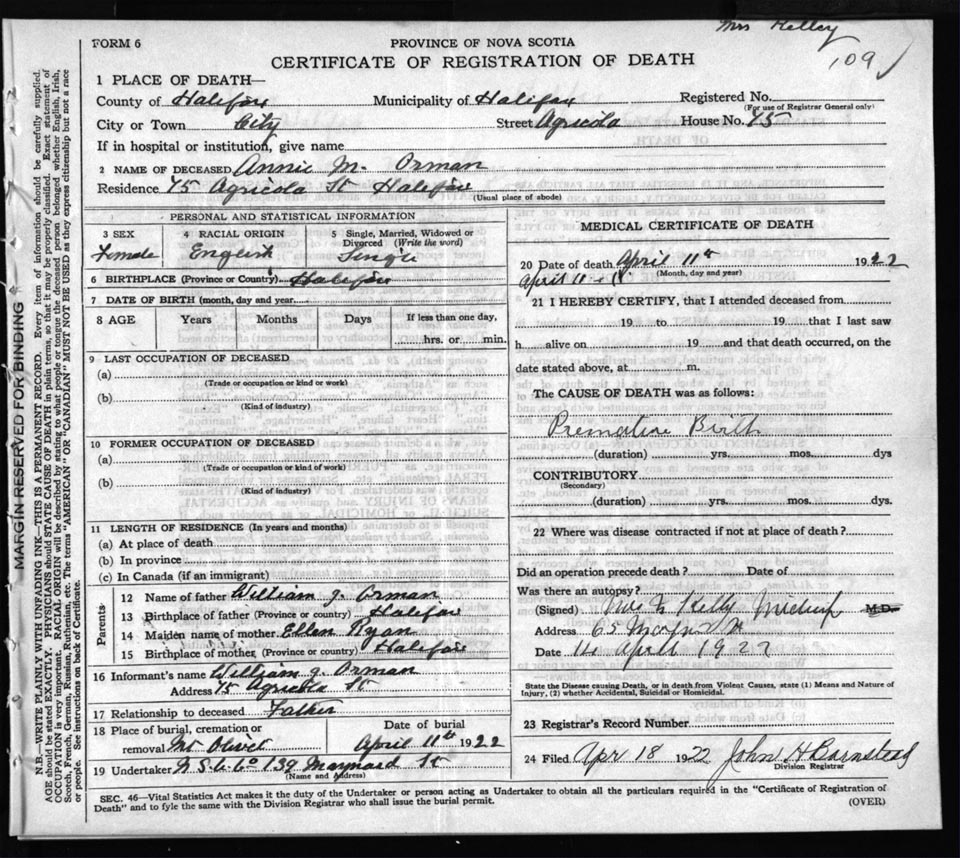 Mrs Kelley
109
FORM 6
PROVINCE OF NOVA SCOTIA
CERTIFICATE OF REGISTRATION OF DEATH
1 PLACE OF DEATH—
County of Halifax Municipality of Halifax Registered No.
(For use of Registrar General only)
City or Town City Street Agricola House No. 75
If in hospital or institution, give name
2 NAME OF DECEASED Annie M. Orman
Residence 75 Agricola St Halifax
(Usual place of abode)
PERSONAL AND STATISTICAL INFORMATION
3 SEX 4 RACIAL ORIGIN 5 Single, Married, Widowed or Divorced (Write the word)
Female English Single
6 BIRTHPLACE (Province or Country) Halifax
7 DATE OF BIRTH (month, day and year)
8 AGE Years Months Days If less than one day,
hrs. or min.
9 LAST OCCUPATION OF DECEASED
(a)
(Trade or occupation or kind or work)
(b)
(Kind of industry)
10 FORMER OCCUPATION OF DECEASED
(a)
(Trade or occupation or kind of work)
(b)
(Kind of industry)
11 LENGTH OF RESIDENCE (In years and months)
(a) At place of death
(b) In province
(c) In Canada (if an immigrant)
Parents
12 Name of father William J. Orman
13 Birthplace of father (Province or country) Halifax
14 Maiden name of mother Ellen Ryan
15 Birthplace of mother (Province or country) Halifax
16 Informant's name William J. Orman
Address 75 Agricola St
17 Relationship to deceased Father
18 Place of burial, cremation or removal Mt Olivet
Date of burial
April 11th 1922
19 Undertaker N S U Co 139 Maynard St
(Name and Address)
MEDICAL CERTIFICATE OF DEATH
20 Date of death April 11th 1922
(Month, day and year)
April 11
21 I HEREBY CERTIFY, that I attended deceased from
19 to 19 that I last saw
h alive on 19 and that death occurred, on the
date stated above, at m.
The CAUSE OF DEATH was as follows:
Premature Birth
(duration) yrs. mos. dys
CONTRIBUTORY
(Secondary)
(duration) yrs. mos. dys.
22 Where was disease contracted if not at place of death?
Did an operation precede death? Date of
Was there an autopsy?
(Signed) Mrs Kelly Midwife M.D.
Address 65
Date 14 April 1922
State the Disease causing Death, or in death from Violent Causes, state (1) Means and Nature of
Injury, (2) whether Accidental, Suicidal or Homicidal.
23 Registrar's Record Number
24 Filed Apr 18 1922 John H Barnstead
Division Registrar
SEC. 46—Vital Statistics Act makes it the duty of the Undertaker or person acting as Undertaker to obtain all the particulars required in the "Certificate of Registration of
Death" and to fyle the same with the Division Registrar who shall issue the burial permit.
(OVER)
MARGIN RESERVED FOR BINDING
N.B.—WRITE PLAINLY WITH UNFADING INK—THIS IS A PERMANENT RECORD. Every item of information should be carefully supplied.
AGE should be stated EXACTLY. PHYSICIANS should STATE CAUSE OF DEATH in plain terms, so that it may be properly classified. Exact statement of
OCCUPATION is very important. RACIAL ORIGIN will be described by stating to what people or tongue the deceased person belonged whether English, Irish,
Scotch, French, German, Russian, Ruthenian, etc. The terms "AMERICAN" OR "CANADIAN" MUST NOT BE USED as they express citizenship but not a race
or people. See instructions on back of Certificate.